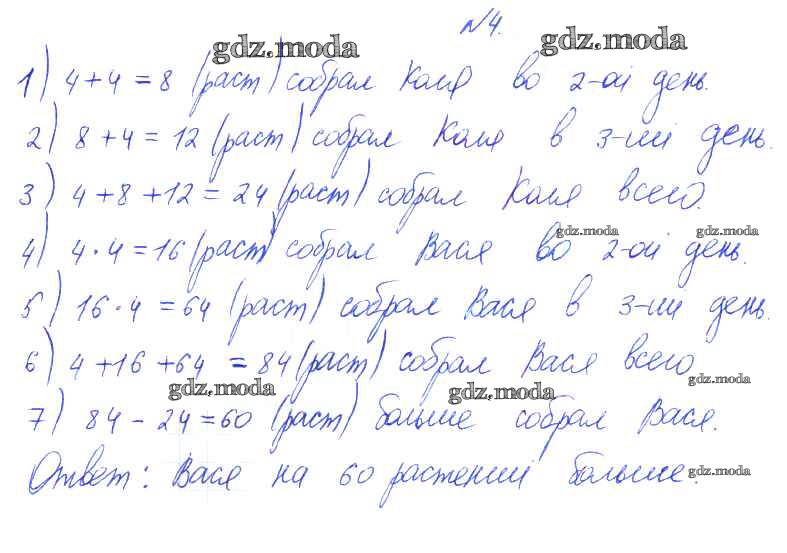 №4.
gdz.moda gdz.moda
1) 4+4=8 (раст) собрал Коля во 2-ой день.
2) 8+4=12 (раст) собрал Коля в 3-ий день.
3) 4+8+12=24 (раст) собрал Коля всего.
gdz.moda gdz.moda
4) 4·4=16 (раст) собрал Вася во 2-ой день.
5) 16·4=64 (раст) собрал Вася в 3-ий день.
6) 4+16+64=84 (раст) собрал Вася всего
gdz.moda gdz.moda gdz.moda
7) 84-24=60 (раст) больше собрал Вася.
Ответ: Вася на 60 растений больше.
gdz.moda